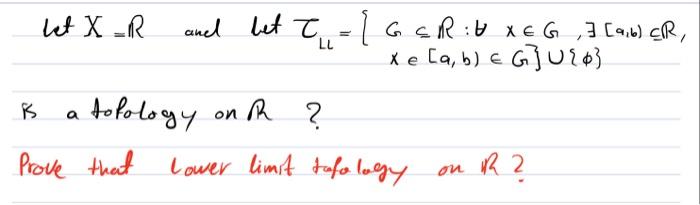 Let X = R and let τ_LL = { G ⊆ R : ∀ x ∈ G , ∃ [a,b) ⊆ R,
x ∈ [a, b) ⊆ G } ∪ {ϕ}
is a topology on R ?
Prove that lower limit topology on R ?